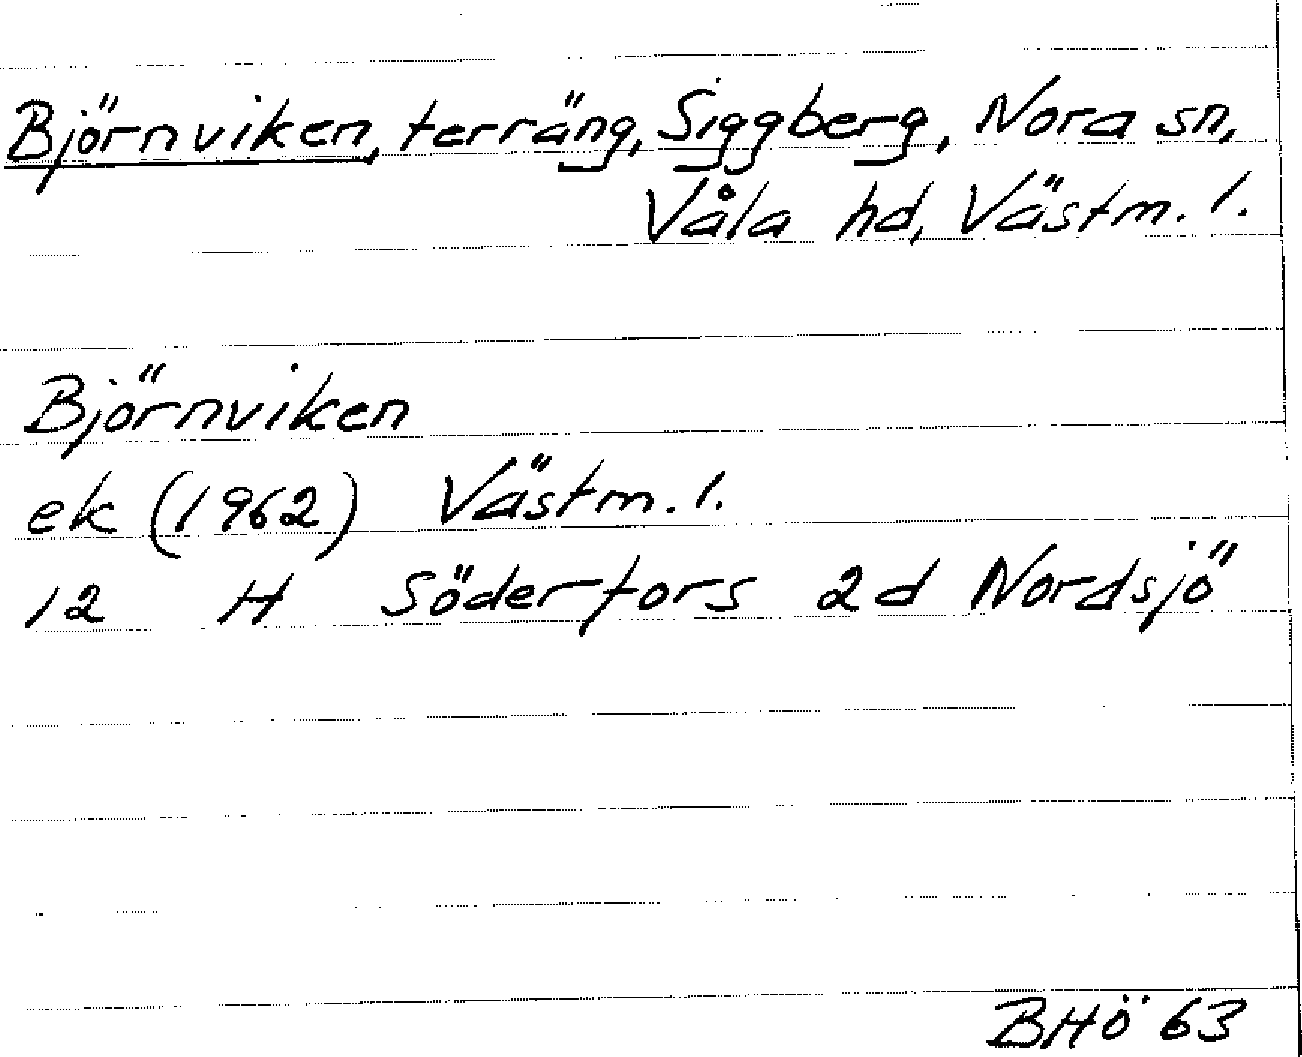 Björnviken, terräng, Siggberg, Nora sn,
Våla hd, Västm. l.
Björnviken
ek (1962) Västm. l.
12 H Söderfors 2d Nordsjö
BHö 63